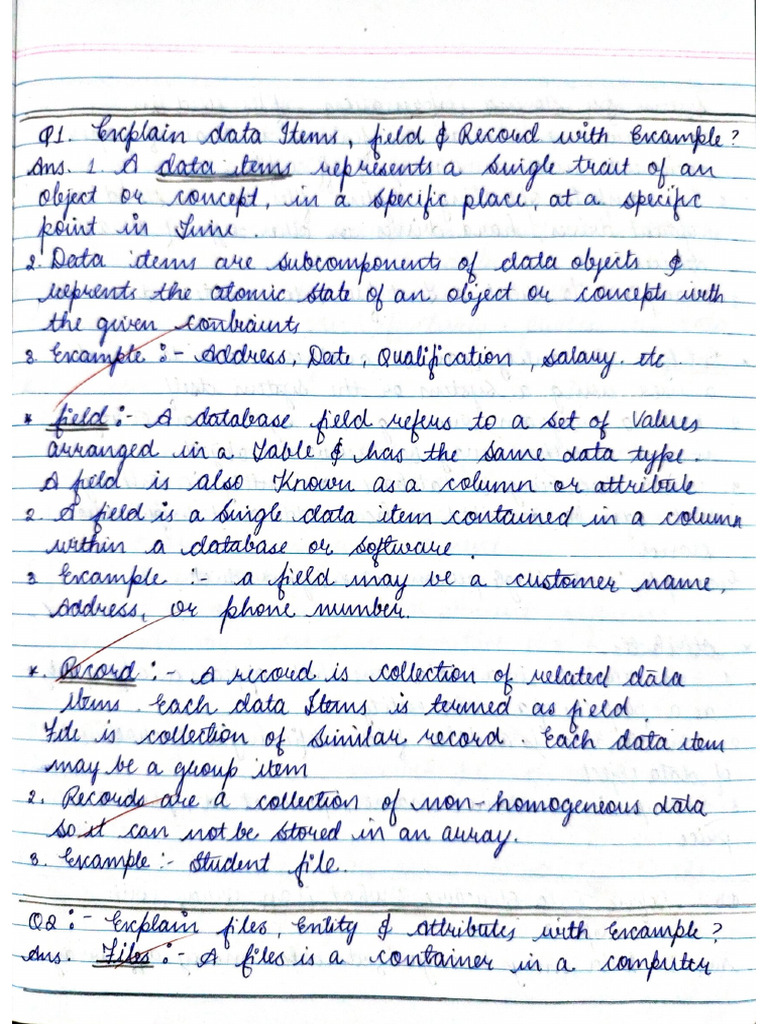 Q1. Explain data Items, field & Record with Example?
Ans. 1. A data items represents a single trait of an
object or concept, in a specific place, at a specific
point in Time.
2. Data items are subcomponents of data objects &
reprents the atomic state of an object or concepts with
the given contraints
3. Example :- Address, Date, Qualification, salary. etc
* field :- A database field refers to a set of Values
arranged in a Table & has the same data type.
A field is also Known as a column or attribute
2. A field is a single data item contained in a column
within a database or software.
3 Example :- a field may be a customer name,
Address, or phone number.
*. Record :- A record is collection of related data
Items. Each data Items is termed as field.
File is collection of similar record. Each data item
may be a group item
2. Records are a collection of non-homogeneous data
so it can not be stored in an array.
3. Example :- Student file.
Q2 :- Explain files, Entity & Attributes with Example?
Ans. Files :- A files is a container in a computer